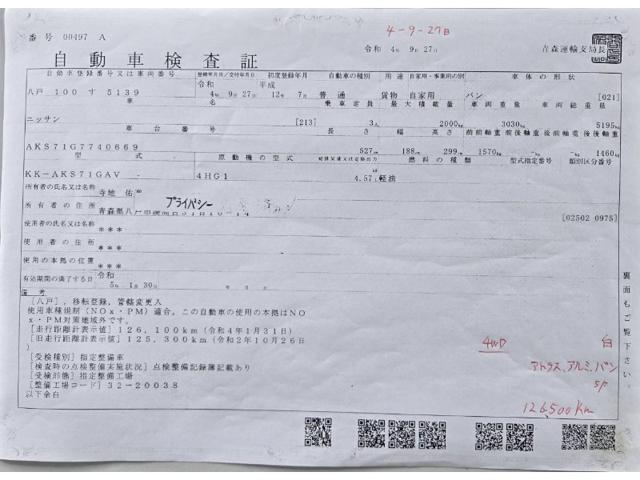 4-9-27日
番号 00497 A
令和 4年 9月 27日 青森運輸支局長
自動車検査証
自動車登録番号又は車両番号 登録年月日/交付年月日 初度登録年月 自動車の種別 用途 自家用・事業用の別 車体の形状
令和 平成
八戸 100 す 5139 4年 9月 27日 12年 7月 普通 貨物 自家用 バン [021]
車名 乗車定員 最大積載量 車両重量 車両総重量
ニッサン [213] 3人 2000kg 3030kg 5195kg
車台番号 長さ 幅 高さ 前前軸重 前後軸重 後前軸重 後後軸重
AKS71G7740669 527cm 188cm 299cm 1570kg -kg -kg 1460kg
型式 原動機の型式 総排気量又は定格出力 燃料の種類 型式指定番号 類別区分番号
KK-AKS71GAV 4HG1 4.57L 軽油
所有者の氏名又は名称 寺地 佑
所有者の住所 プライバシー
青森県八戸
[02502 0975]
使用者の氏名又は名称 ***
使用者の住所 ***
使用の本拠の位置 ***
有効期間の満了する日 令和
5年 1月 30日
裏面もご覧下さい。
備考
[八戸],移転登録,管轄変更入
使用車種規制(NOx・PM)適合,この自動車の使用の本拠はNO
x・PM対策地域外です。
[走行距離計表示値] 126,100km (令和4年1月31日)
[旧走行距離計表示値] 125,300km (令和2年10月26日)
[受検種別] 指定整備車
[検査時の点検整備実施状況] 点検整備記録簿記載あり
[受検形態] 指定整備工場
[整備工場コード] 32-20038
以下余白
4WD 白
アトラス,アルミ,バン
5F
126,500Km